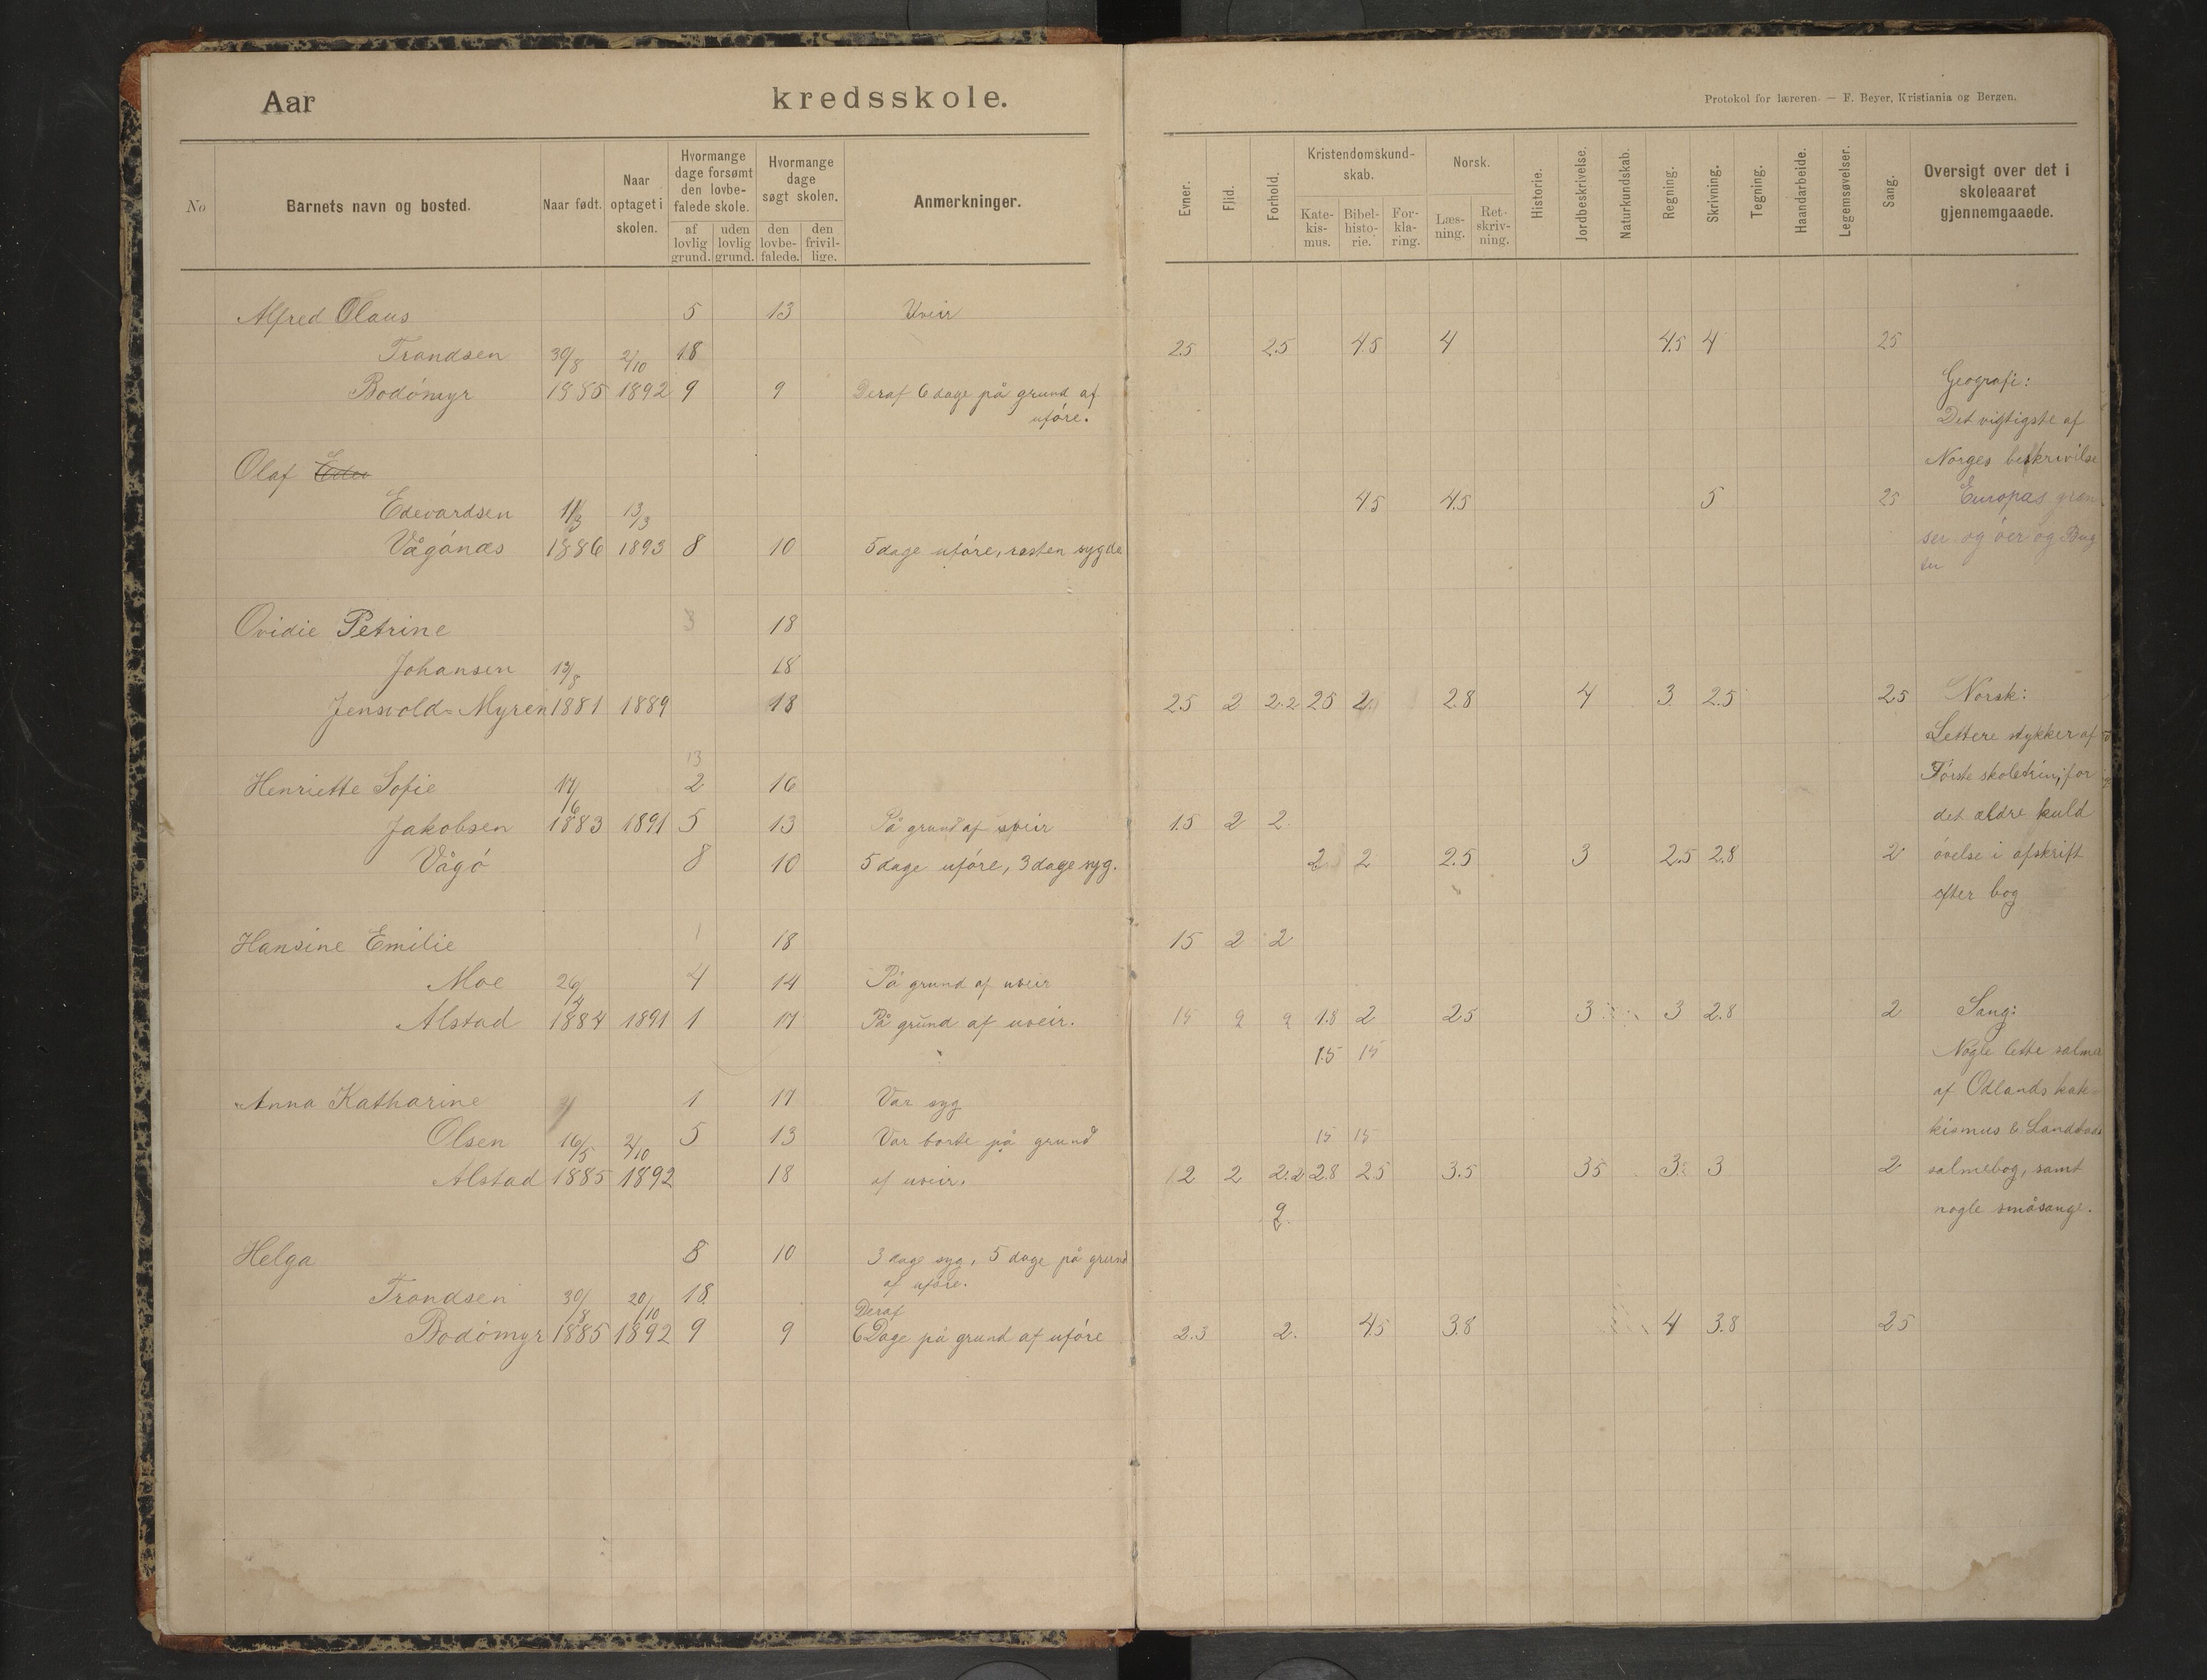 Aar kredsskole.
No
Barnets navn og bosted.
Naar født.
Naar optaget i skolen.
Hvormange dage forsømt den lovbe-falede skole.
af lovlig grund.
uden lovlig grund.
Hvormange dage søgt skolen.
den lovbe-falede.
den frivil-lige.
Anmerkninger.
Alfred Olaus 5 13 Uveir
Trondsen 30/8 2/10 18
Bodömyr 1885 1892 9 9 Deraf 6 dage på grund af
uföre.
Olaf
Edevardsen 11/3 13/3
Vågönæs 1886 1893 8 10 5 dage uföre, resten sygde
Ovidie Petrine 3 18
Johansen 12/8 18
Jensvold-Myren 1881 1889 18
13
Henriette Sofie 17/6 2 16
Jakobsen 1883 1891 5 13 På grund af uveir
Vågö 8 10 5 dage uföre, 3 dage syg.
Hansine Emilie 1 18
Moe 26/4 4 14 På grund af uveir
Alstad 1884 1891 1 17 På grund af uveir.
Anna Katharine 1 17 Var syg
Olsen 16/5 2/10 5 13 Var borte på grund
Alstad 1885 1892 18 af uveir.
Helga 8 10 3 dage syg, 5 dage på grund
af uföre.
Trondsen 30/8 20/10 18
Deraf
Bodömyr 1885 1892 9 9 6 Dage på grund af uföre
Protokol for læreren. — F. Beyer, Kristiania og Bergen.
Evner.
Flid.
Forhold.
Kristendomskund-skab.
Kate-kis-mus.
Bibel-histo-rie.
For-kla-ring.
Norsk.
Læs-ning.
Ret-skriv-ning.
Historie.
Jordbeskrivelse.
Naturkundskab.
Regning.
Skrivning.
Tegning.
Haandarbeide.
Legemsøvelser.
Sang.
Oversigt over det i skoleaaret gjennemgaaede.
2.5 2.5 4.5 4 4.5 4 25
Geografi:
Det vigtigste af
Norges beskrivilse
4.5 4.5 5 25 Europas græn
ser og öer og Bug
ter
2.5 2 2.2 25 2 2.8 4 3 2.5 25 Norsk:
Lettere stykker af
Förste skoletrin; for
1.5 2 2. det ældre kuld
2 2 2.5 3 2.5 2.8 2 övelse i afskrift
efter bog
15 2 2
15 2 2 1.8 2 25 3 3 2.8 2 Sang:
1.5 15 Nogle lette salmer
af Odlands kate-
15 15 kismus & Landstads
12 2 2.2 2.8 2.5 3.5 35 3. 3 2 salmebog, samt
2. nogle småsange.
2.3 2. 4.5 3.8 4 3.8 25